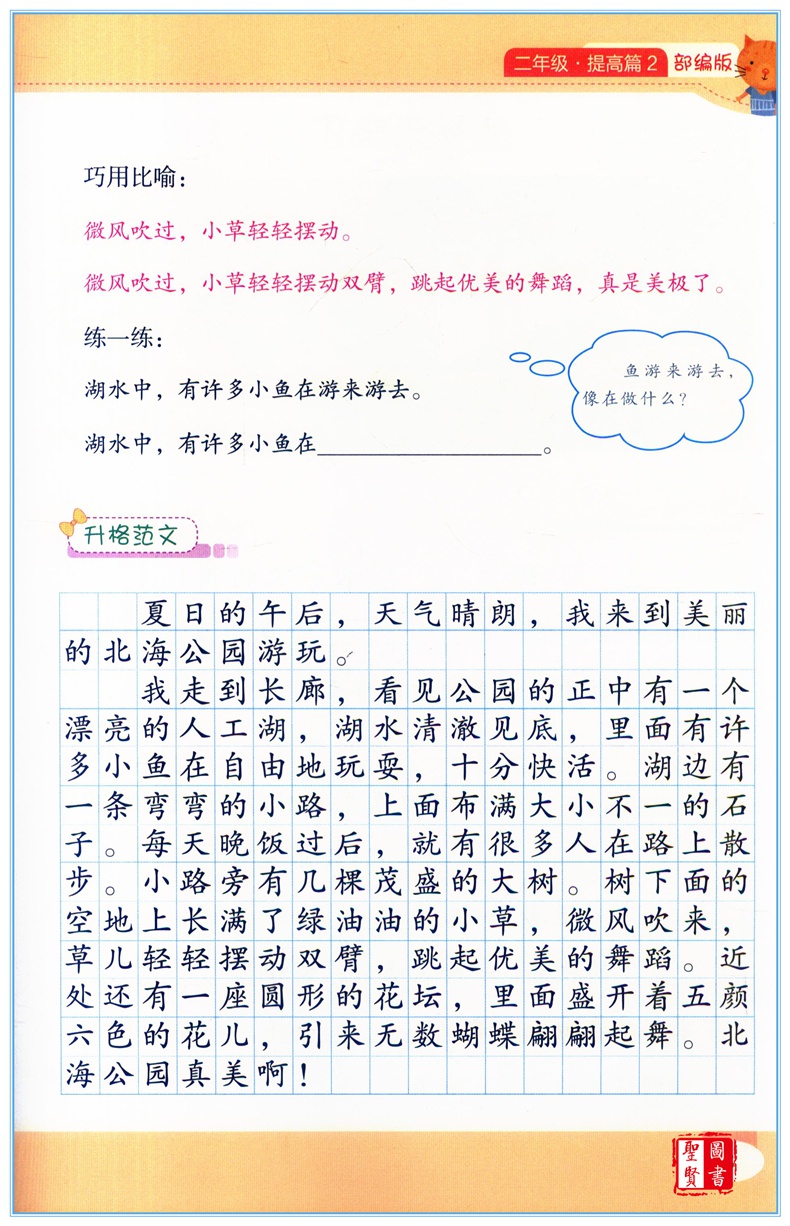 二年级·提高篇2 部编版
巧用比喻：
微风吹过，小草轻轻摆动。
微风吹过，小草轻轻摆动双臂，跳起优美的舞蹈，真是美极了。
练一练：
湖水中，有许多小鱼在游来游去。
鱼游来游去，
像在做什么？
湖水中，有许多小鱼在________________。
升格范文
夏日的午后，天气晴朗，我来到美丽
的北海公园游玩。
我走到长廊，看见公园的正中有一个
漂亮的人工湖，湖水清澈见底，里面有许
多小鱼在自由地玩耍，十分快活。湖边有
一条弯弯的小路，上面布满大小不一的石
子。每天晚饭过后，就有很多人在路上散
步。小路旁有几棵茂盛的大树。树下面的
空地上长满了绿油油的小草，微风吹来，
草儿轻轻摆动双臂，跳起优美的舞蹈。近
处还有一座圆形的花坛，里面盛开着五颜
六色的花儿，引来无数蝴蝶翩翩起舞。北
海公园真美啊！
聖賢圖書